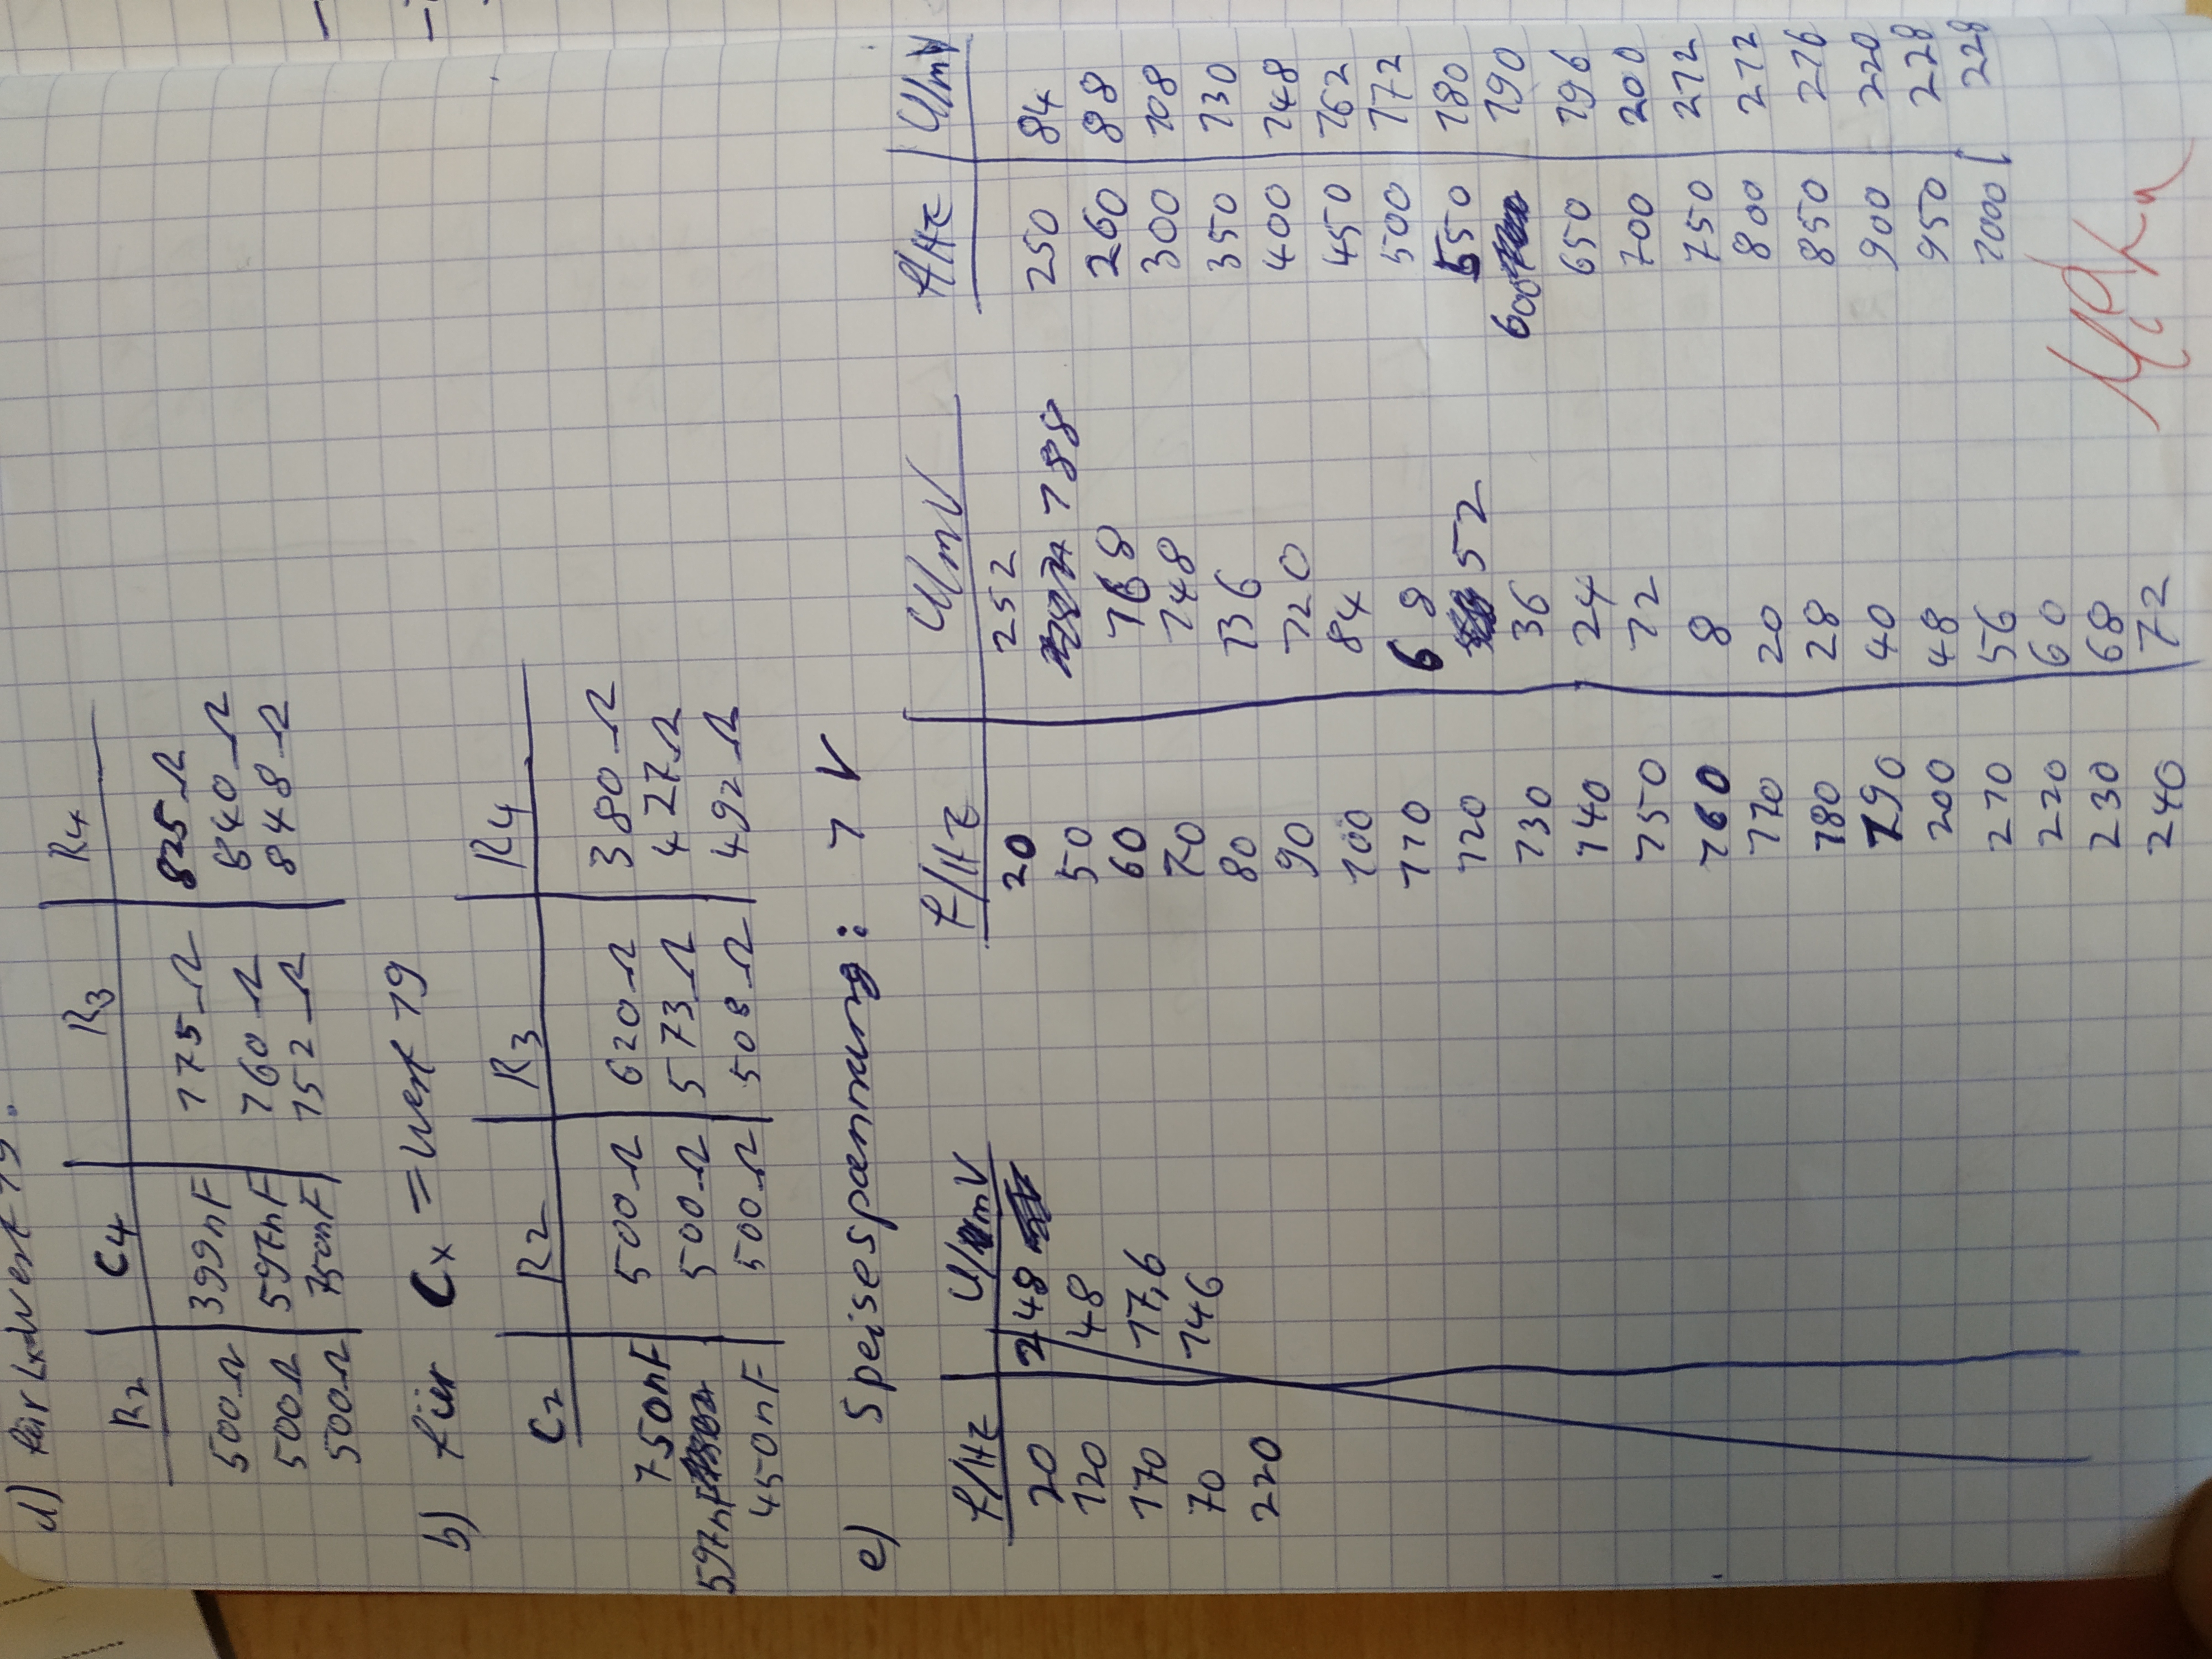 d) für Lx=Wert 19.
R2 C4 R3 R4
500Ω 399nF 175Ω 825Ω
500Ω 597nF 160Ω 840Ω
500Ω 750nF 152Ω 848Ω
b) für Cx = Wert 19
C2 R2 R3 R4
750nF 500Ω 620Ω 380Ω
597nF 500Ω 573Ω 427Ω
450nF 500Ω 508Ω 492Ω
e) Speisespannung: 1 V
f/Hz U/mV
20 248
120 48
170 17,6
70 146
220
f/Hz U/mV
20 252
50 188
60 168
70 148
80 136
90 120
100 84
110 68
120 52
130 36
140 24
150 12
160 8
170 20
180 28
190 40
200 48
210 56
220 60
230 68
240 72
f/Hz U/mV
250 84
260 88
300 108
350 130
400 148
450 162
500 172
550 180
600 190
650 196
700 200
750 212
800 212
850 216
900 220
950 228
1000 228